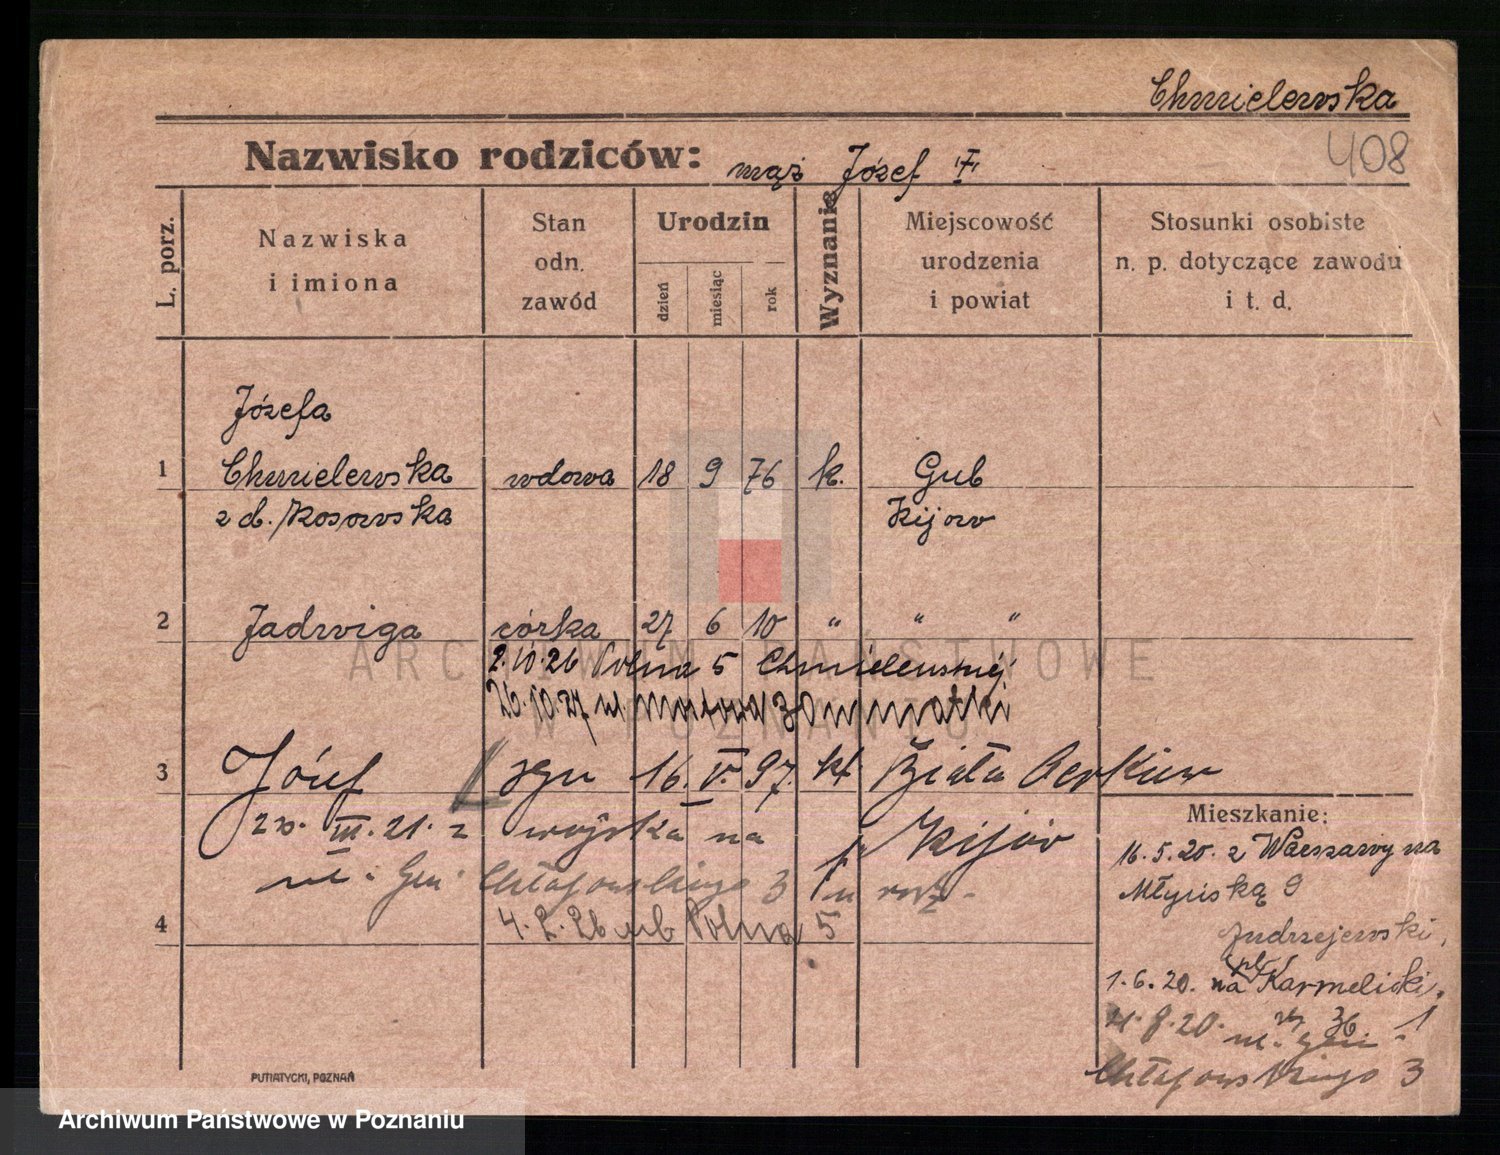 Chmielewska
408
Nazwisko rodziców: mąż Józef F
L. porz.
Nazwiska
i imiona
Stan
odn.
zawód
Urodzin
dzień
miesiąc
rok
Wyznanie
Miejscowość
urodzenia
i powiat
Stosunki osobiste
n. p. dotyczące zawodu
i t. d.
Józefa
1 Chmielewska wdowa 18 9 76 k. Gub
z d. Kosowska Kijow
2 Jadwiga córka 27 6 10 " " "
2.10.26 Polna 5 Chmielewskiej
26.10.27 ul. 30 w matki
3 Józef syn 16. V. 97. kt. Biała Cerkiew
zw. III. 21. z wojska na Kijów
ul. Gen. Chłapowskiego 3
4 4. 2. 26 Polna 5
Mieszkanie:
16.5.20. z Warszawy na
Młyńską 9
Andrzejewski,
1.6.20. na pl. Karmelicki.
8.20. ul. Gen. 1
Chłapowskiego 3
PUTIATYCKI, POZNAŃ
ARCHIWUM PAŃSTWOWE
W POZNANIU
Archiwum Państwowe w Poznaniu